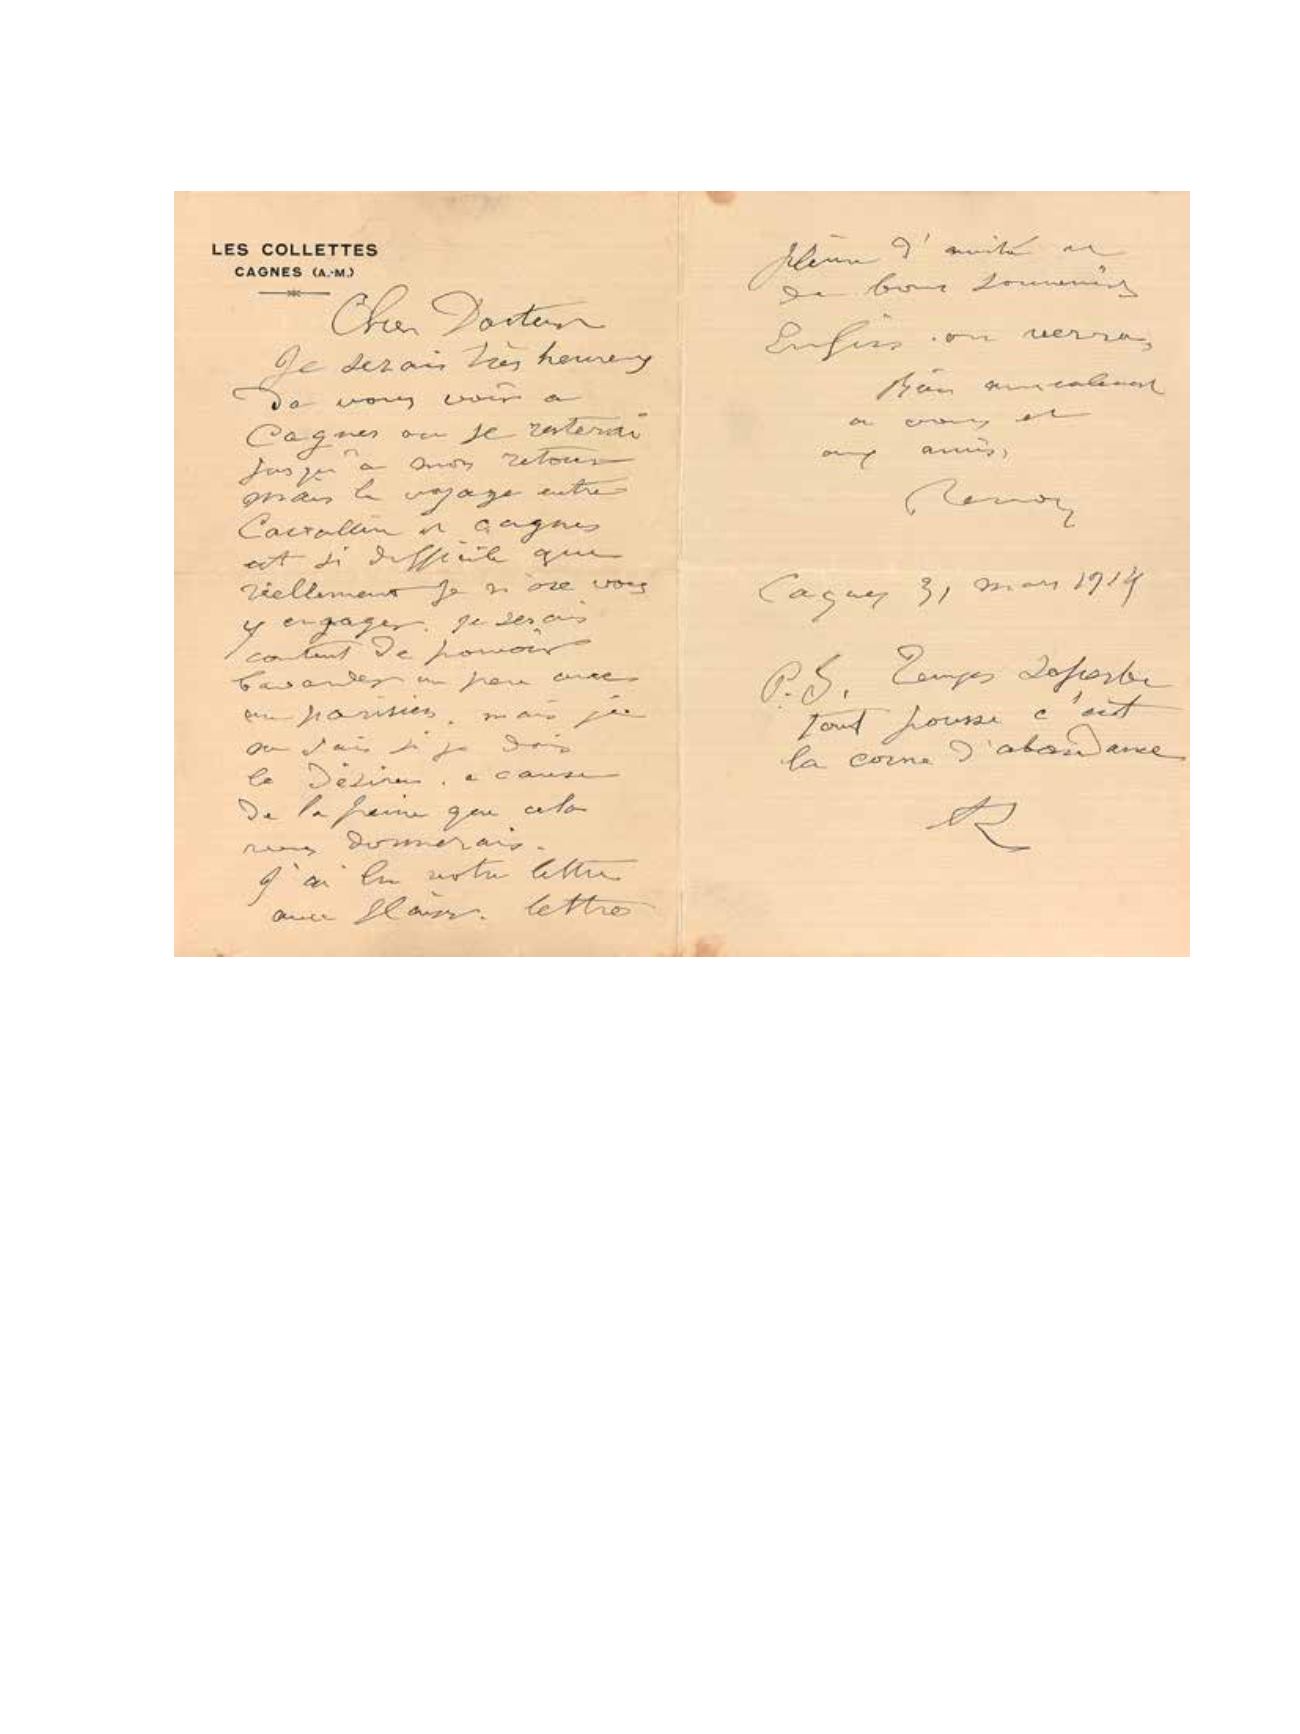 LES COLLETTES
CAGNES (A.-M.)
Cher Docteur
Je serais très heureux
de vous voir a
Cagnes ou je resterai
jusqu'a mon retour
mais le voyage entre
Cavallin et Cagnes
est si difficile que
réellement je n'ose vous
y engager. je serais
content de pouvoir
bavarder un peu avec
un parisien. mais je
ne sais si je dois
le désirer. a cause
de la peine que cela
vous donnerais.
J'ai lu votre lettre
avec plaisir. lettre
pleine d'amitié et
de bons souvenirs
Enfin. on verra,
Bien amicalement
a vous et
aux amis,
Renoir
Cagnes 31 mars 1914
P.S. Temps superbe
tout pousse c'est
la corne d'abondance
R